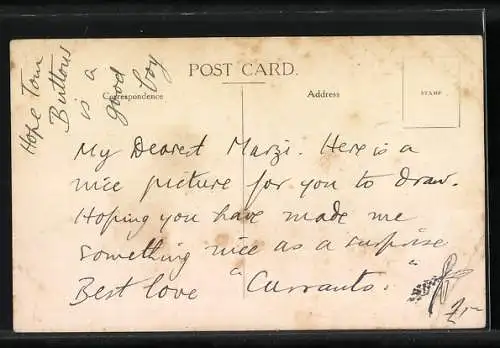 Hope Tom
Buttons
is a
good
boy
POST CARD.
Correspondence
Address
STAMP
My Dearest Marzi. Here is a
nice picture for you to draw.
Hoping you have made me
something nice as a surprise
Best love "Curranto."